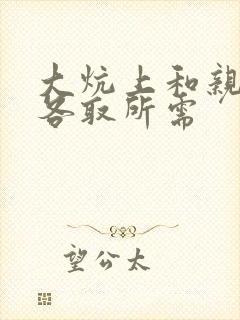 大炕上和親
各取所需
望公太